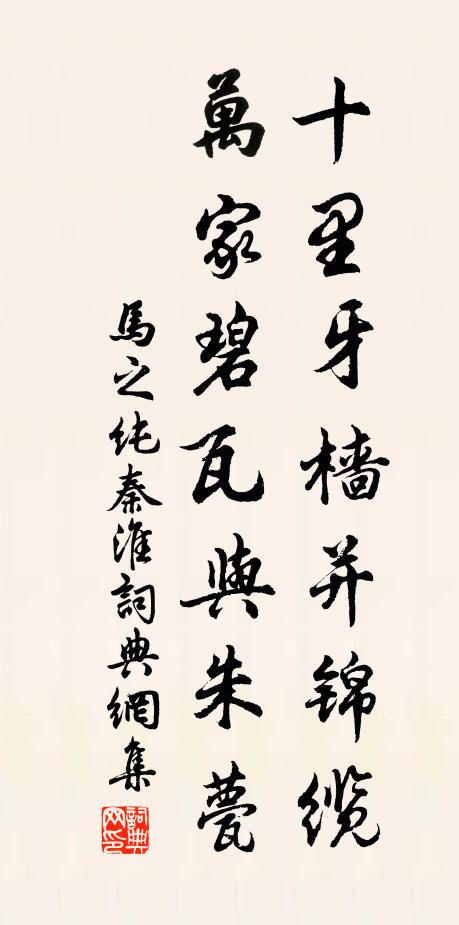 十里牙檣并锦缆
萬家碧瓦與朱甍
馬之纯秦淮詞典網集
詞典
网印